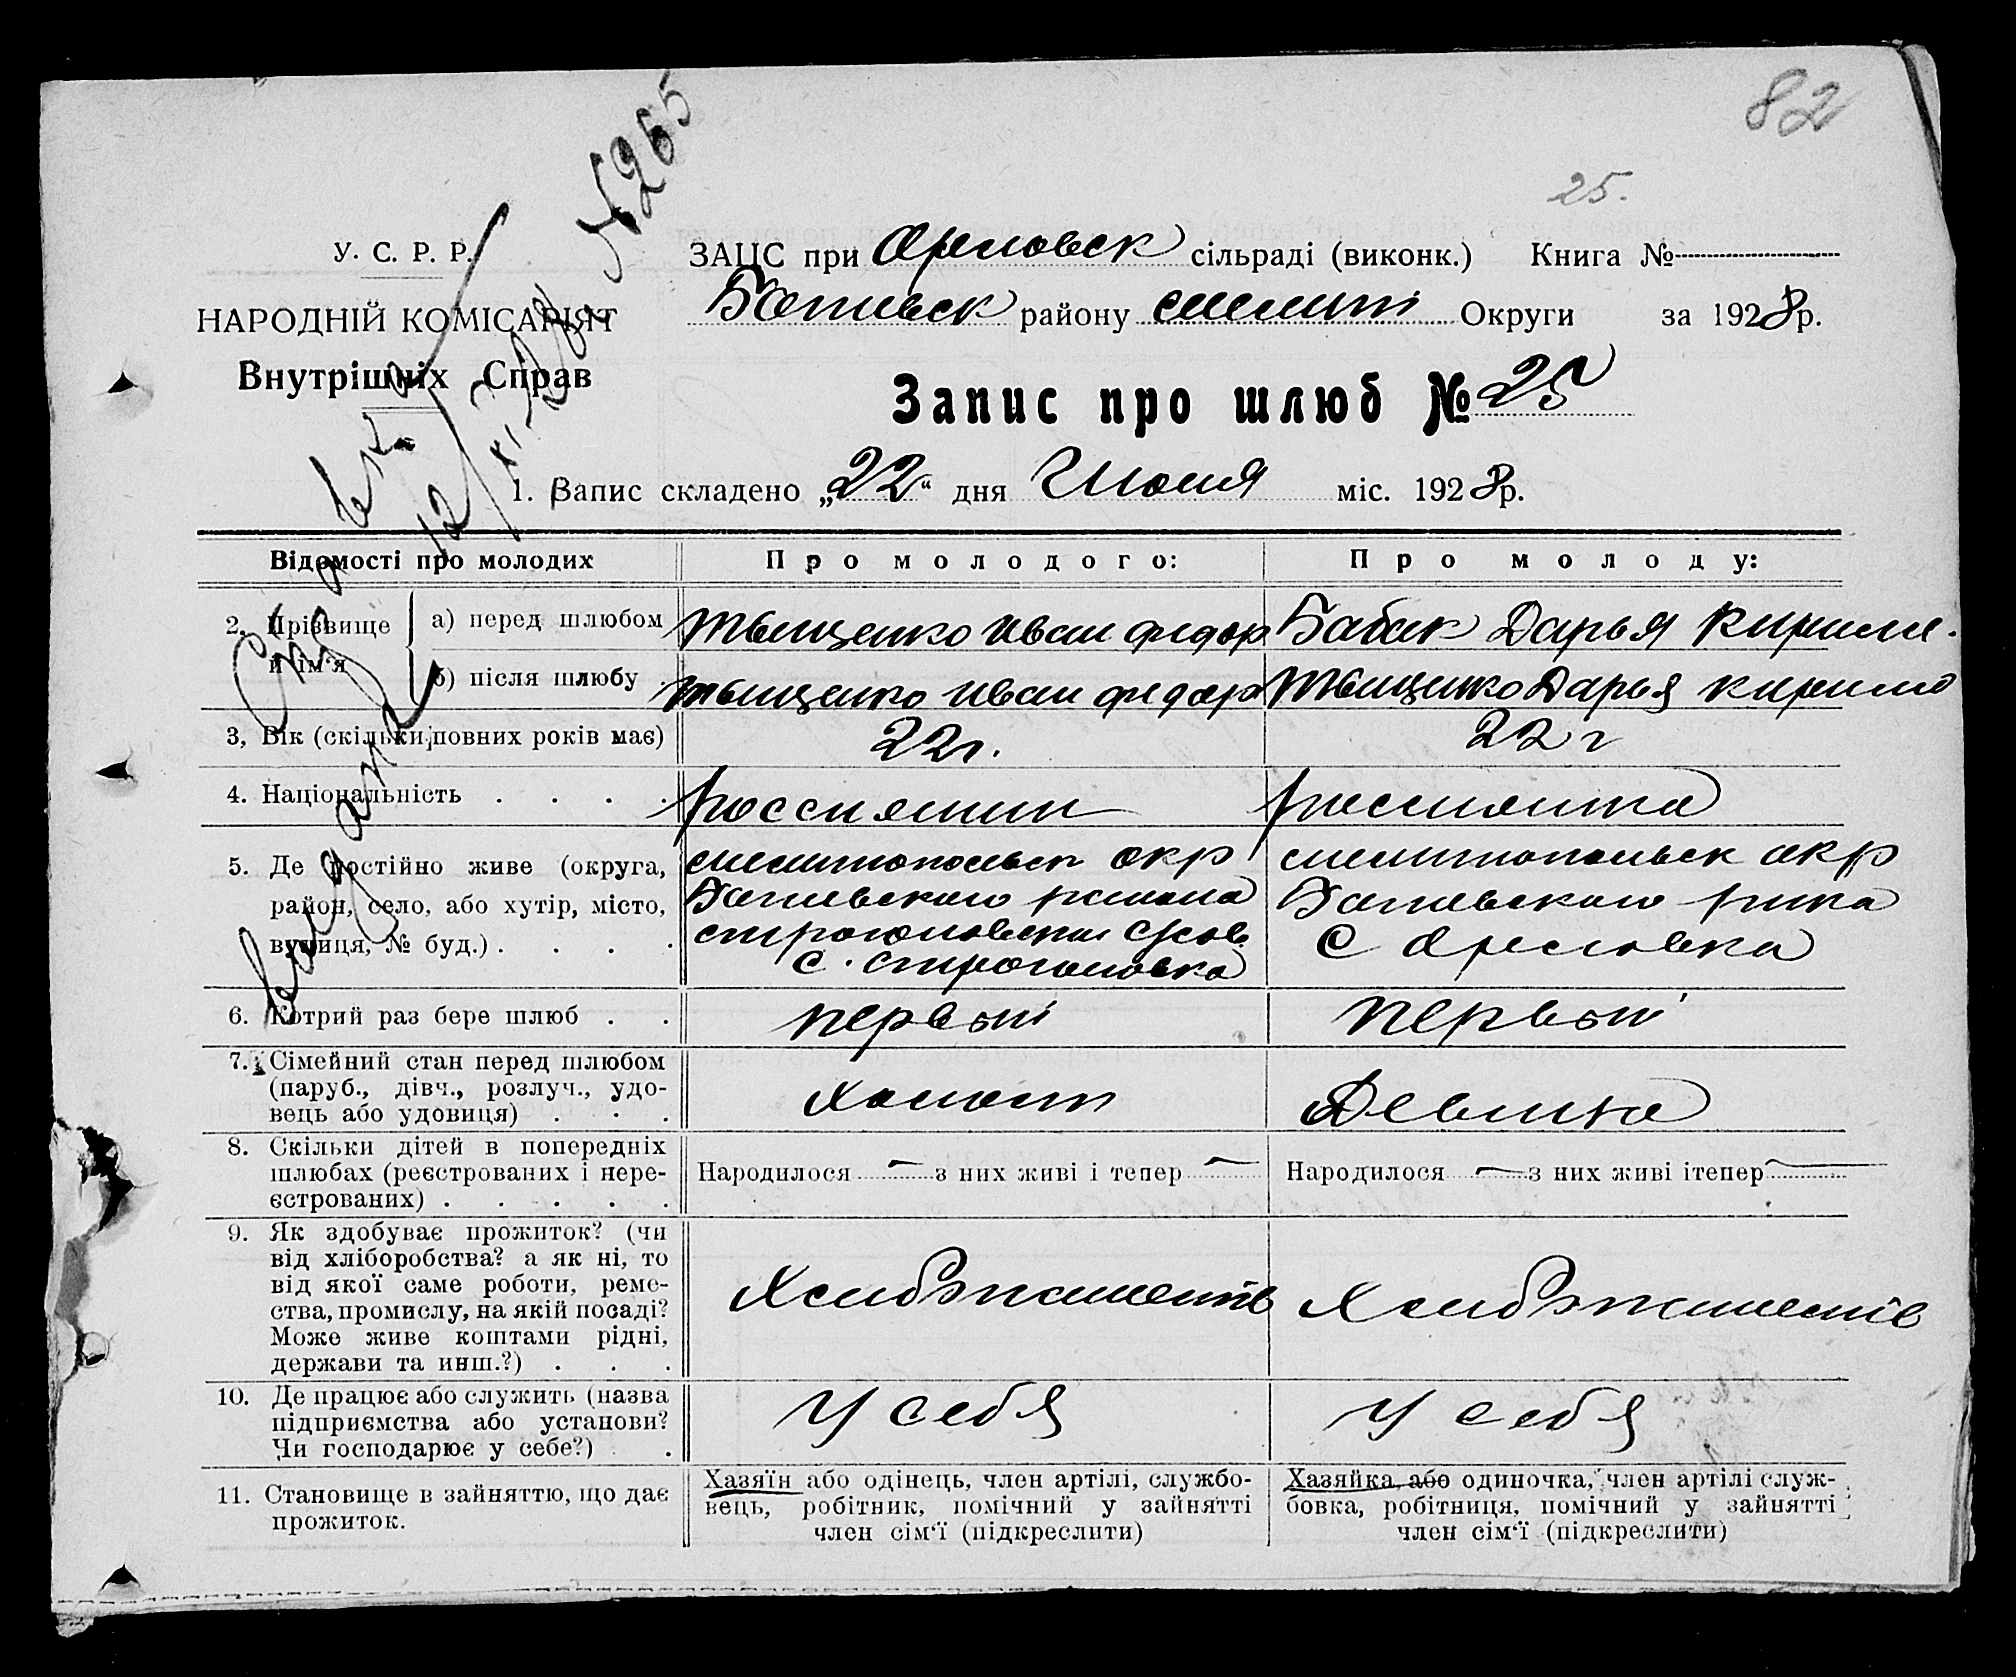 82
25.
У. С. Р. Р.
НАРОДНІЙ КОМІСАРІЯТ
Внутрішніх Справ
ЗАЦС при Орловск сільраді (виконк.) Книга №
района Округи за 1928 р.
Запис про шлюб № 25
1. Запис складено „22“ дня Июня міс. 1928 р.
Справка
выдана
12/XI-28 №265
Відомості про молодих Про молодого: Про молоду:
2. Прізвище й ім'я
а) перед шлюбом Твищенко Иван Федор Бабак Дарья Кирил.
б) після шлюбу Твищенко Иван Федор Твищенко Дарья Кирило
3, Вік (скільки повних років має) 22 г. 22 г
4. Національність . . . . россиянин россиянка
5. Де постійно живе (округа,
район, село, або хутір, місто,
вулиця, № буд.) . . . .
мелитопольск окр
района
строгоновский
с. строгоновка
мелитопольск окр
с Орловка
6. Котрий раз бере шлюб . . первый первый
7. Сімейний стан перед шлюбом
(паруб., дівч., розлуч., удо-
вець або удовиця) . . .
холост Девица
8. Скільки дітей в попередніх
шлюбах (реєстрованих і нере-
єстрованих) . . . . .
Народилося — з них живі і тепер — Народилося — з них живі ітепер —
9. Як здобуває прожиток? (чи
від хліборобства? а як ні, то
від якої саме роботи, реме-
ства, промислу, на якій посаді?
Може живе коштами рідні,
держави та инш.?) . . .
Хлебопашеств Хлебопашеств
10. Де працює або служить (назва
підприємства або установи?
Чи господарює у себе?) .
У себя У себя
11. Становище в зайняттю, що дає
прожиток.
Хазяїн або одінець, член артілі, службо-
вець, робітник, помічний у зайнятті
член сім'ї (підкреслити)
Хазяйка, або одиночка, член артілі служ-
бовка, робітниця, помічний у зайнятті
член сім'ї (підкреслити)